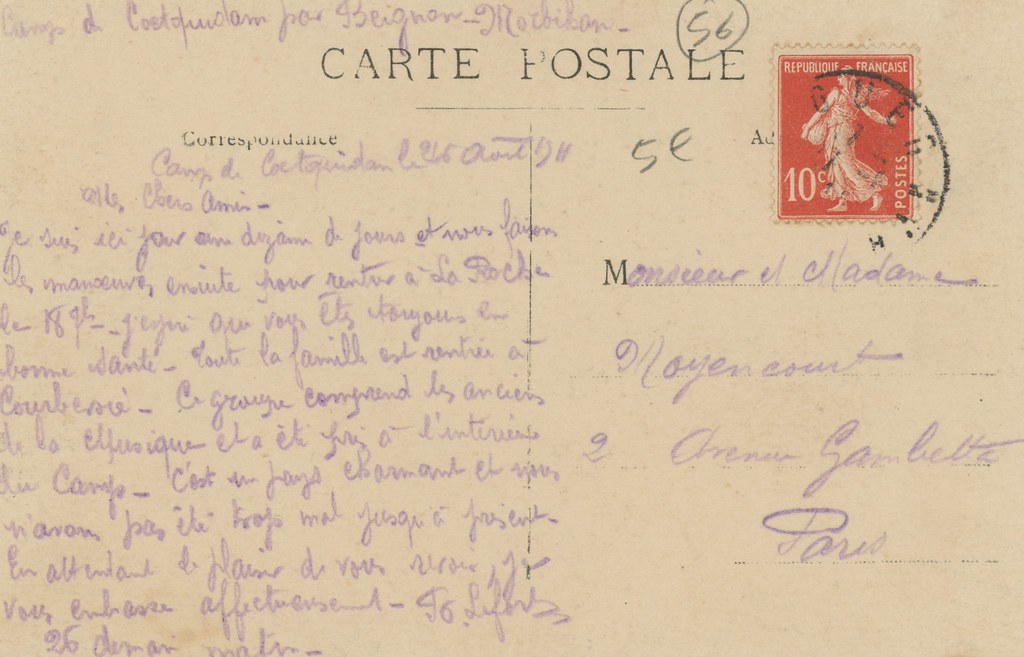 Camp de Coetquidam par Beignon - Morbihan -
56
CARTE POSTALE
REPUBLIQUE FRANÇAISE
10c
POSTES
GUER
Correspondance
Ad
5€
Camp de Coetquidam le 26 Avril 1911
Mes Chers Amis -
Je suis ici pour une dizaine de jours et nous faisons
les manœuvres ensuite pour rentrer à La Roche
le 18 - j'espère que vous êtes toujours en
bonne santé - Toute la famille est rentrée à
Ce groupe comprend les anciens
de la Musique et a été pris à l'intérieur
du Camp - C'est un pays charmant et nous
n'avons pas été trop mal jusqu'à présent -
En attendant le plaisir de vous revoir, je
vous embrasse affectueusement -
26 demain matin -
Monsieur et Madame
Moyencourt
2 Avenue Gambetta
Paris